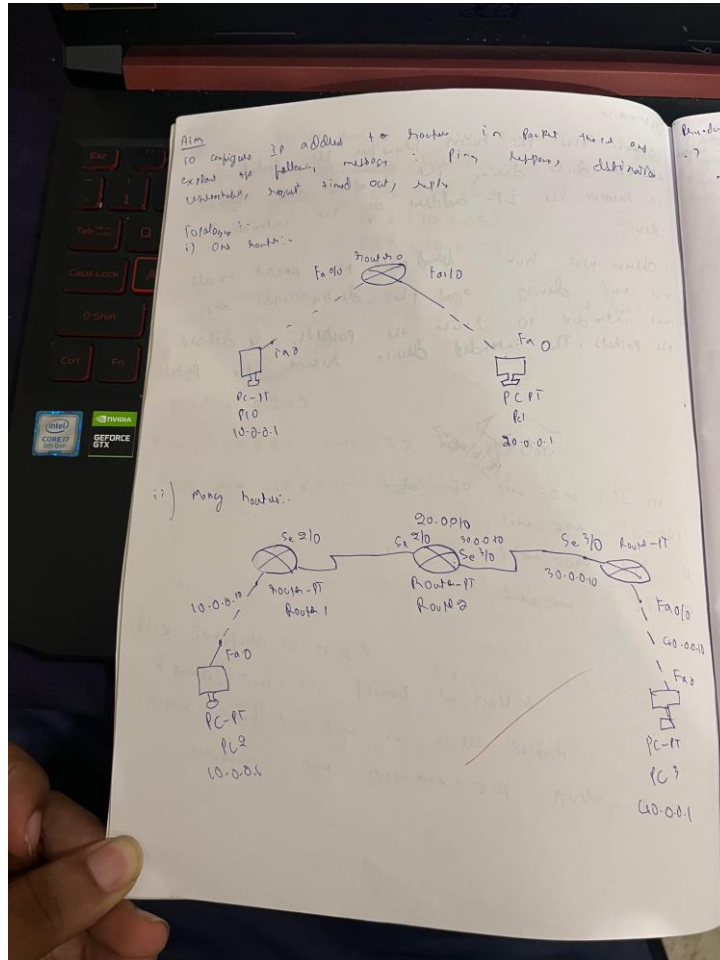 acer
Aim
To configure IP address to router in Packet tracer and
explore the following message : Ping response, destination
unreachable, request timed out, reply
Topology :-
i) One router :-
Router 0
Fa0/0
Fa1/0
Fa0
Fa 0
PC-PT
PC0
10.0.0.1
PC PT
PC1
20.0.0.1
ii) Many routers :-
20.0.0.10
Se 2/0
Se 2/0
30.0.0.10
Se 3/0
Se 3/0
Router-PT
10.0.0.10
Router-PT
Router 1
Router-PT
Router 2
30.0.0.10
Fa0/0
40.0.0.10
Fa0
Fa0
PC-PT
PC2
PC-PT
PC3
40.0.0.1
Esc
1
Tab
Q
Caps Lock
A
Shift
Ctrl
Fn
intel
CORE i7
NVIDIA
GEFORCE
GTX